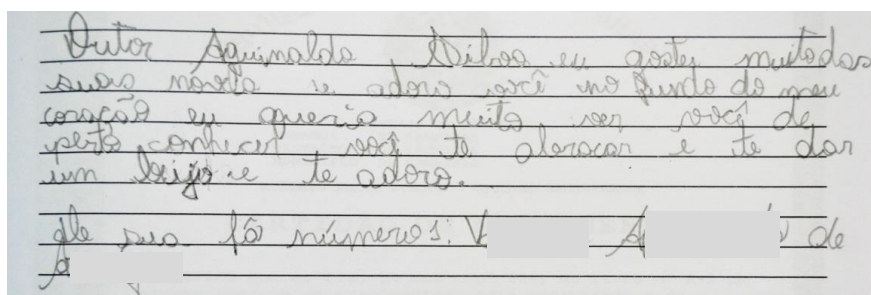 Autor Aguinaldo Silva eu gosto muito das
suas novela e adoro você no fundo do meu
coração eu queria muito ver você de
perto conhecer você te abraçar e te dar
um beijo e te adoro.
de sua fã número 1: V A de
A